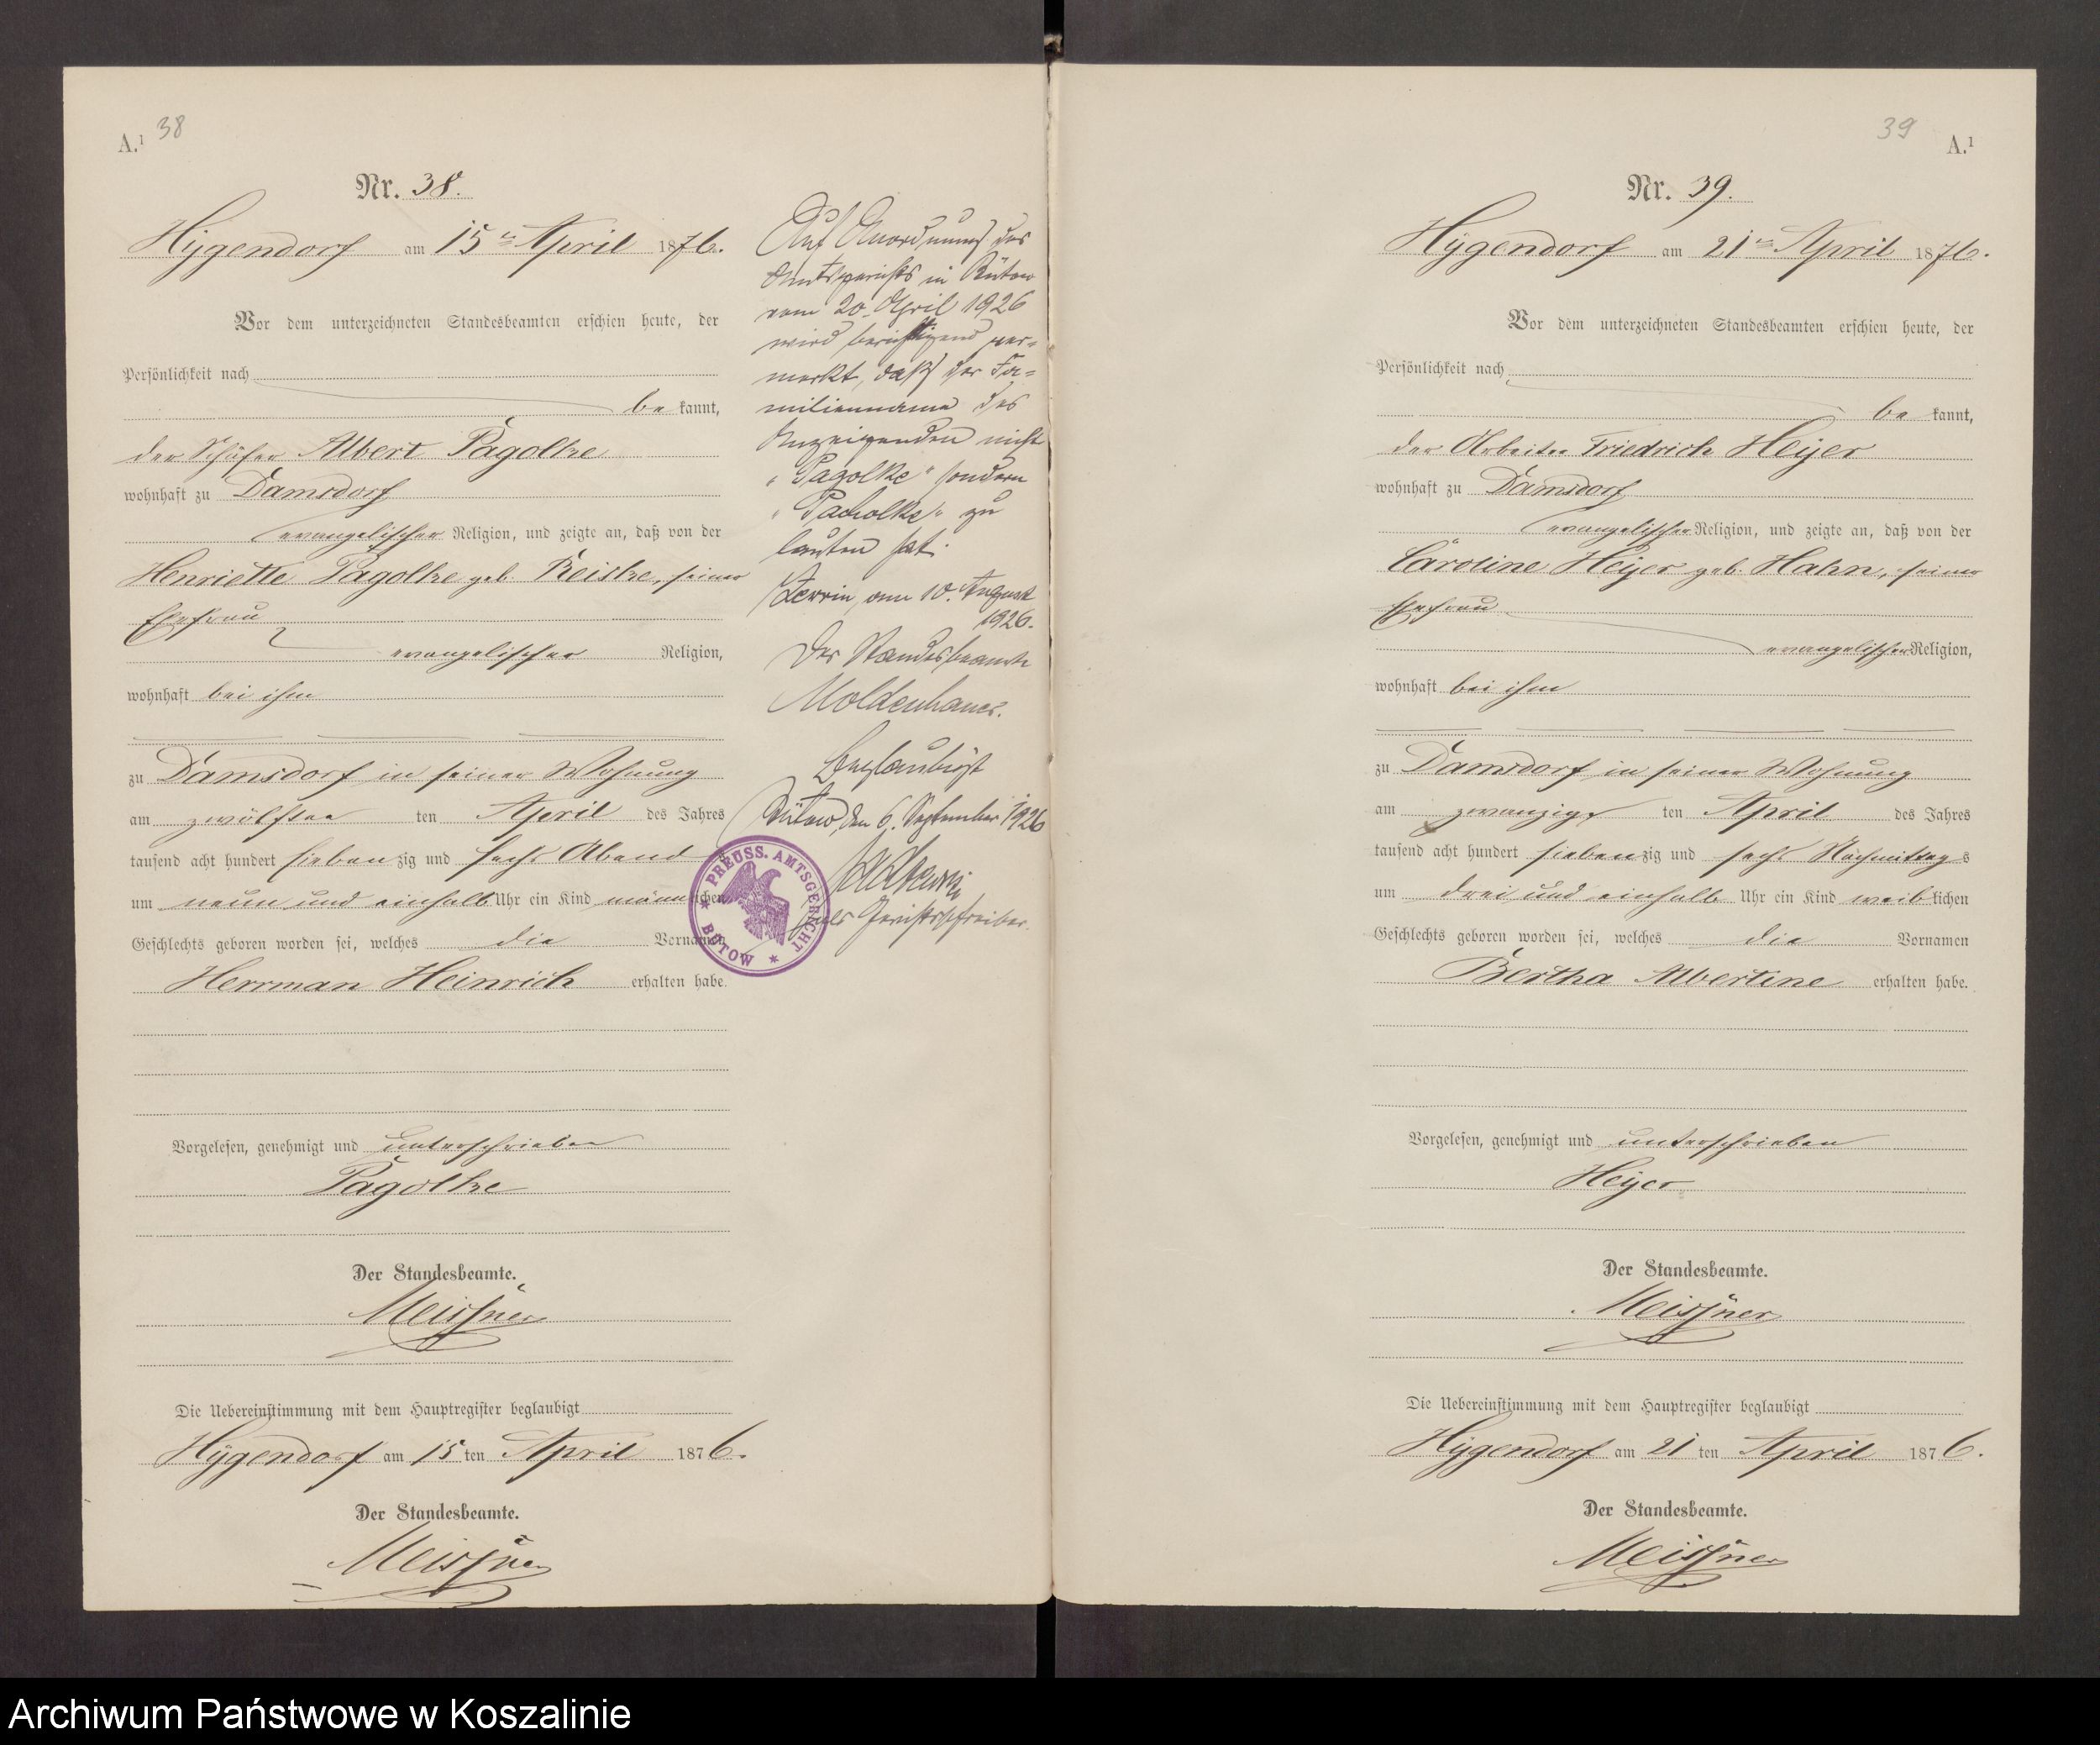 A.¹ 38
Nr. 38.
Hygendorf am 15ten April 1876.
Vor dem unterzeichneten Standesbeamten erschien heute, der
Persönlichkeit nach
be kannt,
der Schäfer Albert Pagolke
wohnhaft zu Damsdorf
evangelischer Religion, und zeigte an, daß von der
Henriette Pagolke geb. Reiske, seiner
Ehefrau
evangelischer Religion,
wohnhaft bei ihm
zu Damsdorf in seiner Wohnung
am zwölften ten April des Jahres
tausend acht hundert sieben zig und sechs Abends
um neun und einhalb Uhr ein Kind männlichen
Geschlechts geboren worden sei, welches die Vornamen
Herrman Heinrich erhalten habe.
Vorgelesen, genehmigt und unterschrieben
Pagolke
Der Standesbeamte.
Meissner
Die Uebereinstimmung mit dem Hauptregister beglaubigt
Hygendorf am 15 ten April 1876.
Der Standesbeamte.
Meissner
Auf Anordnung des
Amtsgerichts in Bütow
vom 20. April 1926
wird berichtigend ver=
merkt, daß der Fa=
milienname des
Anzeigenden nicht
"Pagolke" sondern
"Pacholke" zu
lauten hat.
am 10. August
1926.
Der Standesbeamte
Moldenhauer.
Beglaubigt
Bütow, den 6. September 1926
als Gerichtsschreiber.
PREUSS. AMTSGERICHT
BÜTOW
39 A.¹
Nr. 39.
Hygendorf am 21ten April 1876.
Vor dem unterzeichneten Standesbeamten erschien heute, der
Persönlichkeit nach
be kannt,
der Arbeiter Friedrich Heyer
wohnhaft zu Damsdorf
evangelischer Religion, und zeigte an, daß von der
Caroline Heyer geb. Hahn, seiner
Ehefrau
evangelischer Religion,
wohnhaft bei ihm
zu Damsdorf in seiner Wohnung
am zwanzigs ten April des Jahres
tausend acht hundert sieben zig und sechs Nachmittags
um drei und einhalb Uhr ein Kind weib lichen
Geschlechts geboren worden sei, welches die Vornamen
Bertha Albertine erhalten habe.
Vorgelesen, genehmigt und unterschrieben
Heyer
Der Standesbeamte.
Meissner
Die Uebereinstimmung mit dem Hauptregister beglaubigt
Hygendorf am 21 ten April 1876.
Der Standesbeamte.
Meissner
Archiwum Państwowe w Koszalinie